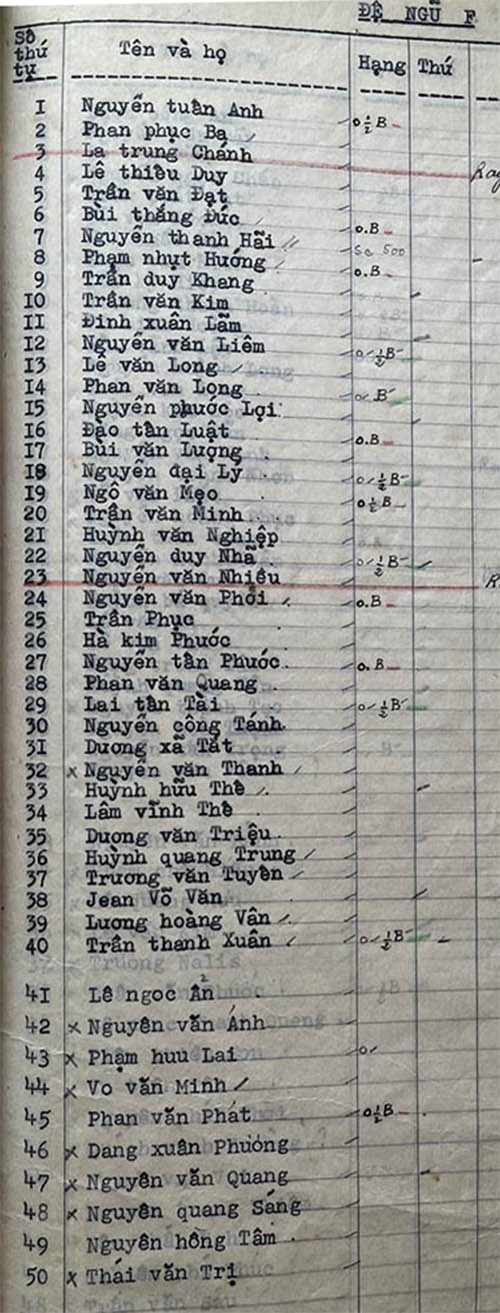 ĐỆ NGŨ F
Số thứ tự Tên và họ Hạng Thứ
1 Nguyễn tuấn Anh
2 Phan phục Ba o ½ B -
3 La trung Chánh
4 Lê thiếu Duy
5 Trần văn Đạt
6 Bùi thắng Đức
7 Nguyễn thanh Hãi o.B -
8 Phạm nhựt Hướng Sc 500
9 Trần duy Khang o.B -
10 Trần văn Kim
11 Đinh xuân Lãm
12 Nguyễn văn Liêm
13 Lê văn Long o/ ½ B -
14 Phan văn Long
15 Nguyễn phước Lợi o/ B -
16 Đào tấn Luật
17 Bùi văn Lượng o.B -
18 Nguyễn đại Lý
19 Ngô văn Mẹo o/ ½ B -
20 Trần văn Minh o ½ B -
21 Huỳnh văn Nghiệp
22 Nguyễn duy Nhã o/ ½ B -
23 Nguyễn văn Nhiều
24 Nguyễn văn Phới o.B -
25 Trần Phục
26 Hà kim Phước
27 Nguyễn tấn Phước o.B -
28 Phan văn Quang
29 Lai tấn Tài o/ ½ B -
30 Nguyễn công Tánh
31 Dương xã Tắt
32 x Nguyễn văn Thanh
33 Huỳnh hữu Thê
34 Lâm vĩnh Thê
35 Dương văn Triệu
36 Huỳnh quang Trung
37 Trương văn Tuyên
38 Jean Võ Văn
39 Lương hoàng Vân
40 Trần thanh Xuân o/ ½ B -
41 Lê ngoc Ân
42 x Nguyên văn Ánh
43 x Phạm huu Lai o/
44 x Vo văn Minh
45 Phan văn Phát o ½ B -
46 x Dang xuân Phương
47 x Nguyên văn Quang
48 x Nguyên quang Sáng
49 Nguyên hồng Tâm
50 x Thái văn Trị